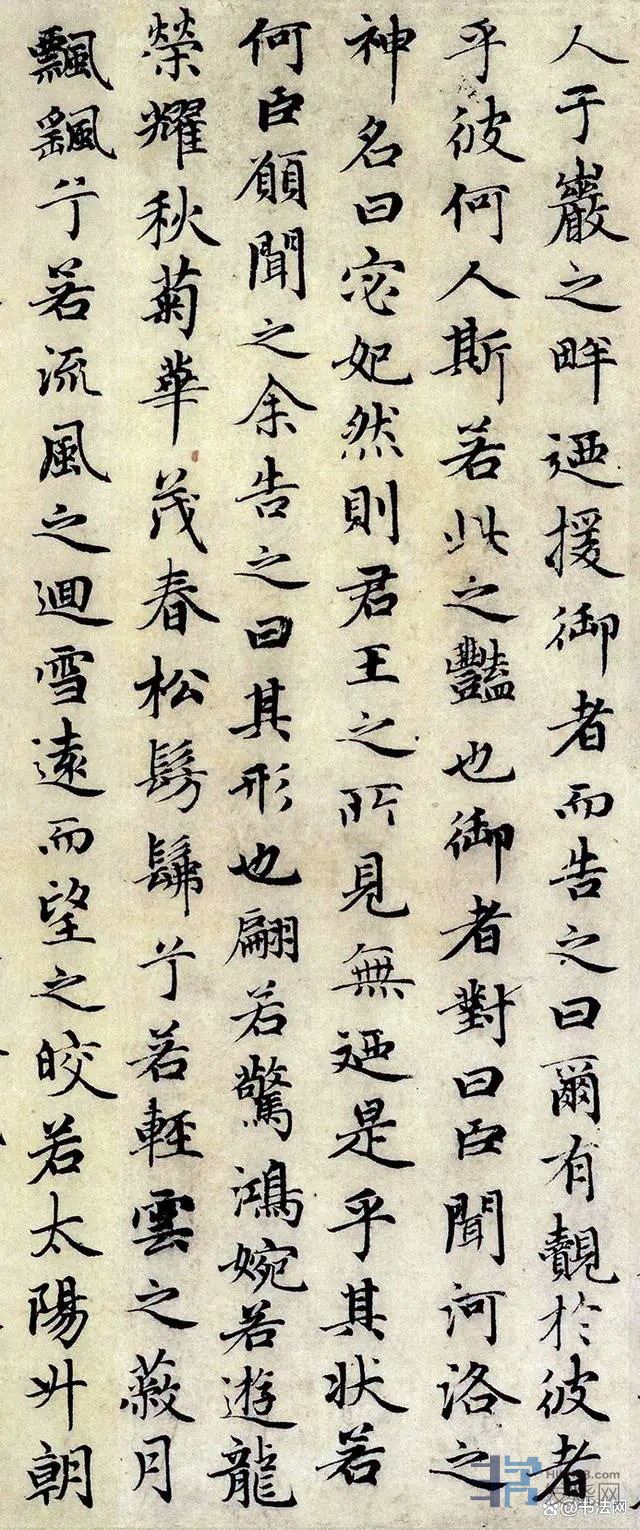 人于巖之畔迺援御者而告之曰爾有覿於彼者
乎彼何人斯若此之豔也御者對曰臣聞河洛之
神名曰宓妃然則君王之所見無迺是乎其状若
何臣願聞之余告之曰其形也翩若驚鴻婉若遊龍
榮耀秋菊華茂春松髣髴兮若輕雲之蔽月
飄颻兮若流風之迴雪遠而望之皎若太陽升朝
书法网